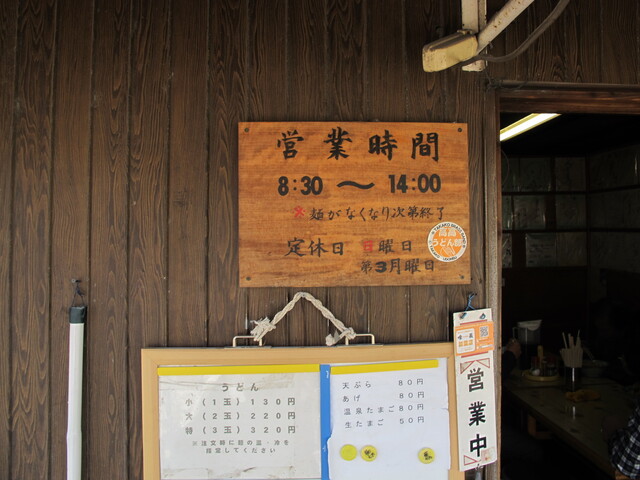 営業時間
8:30 ～ 14:00
※麺がなくなり次第終了
定休日 日曜日
第3月曜日
うどん部
うどん
小(1玉)130円
大(2玉)220円
特(3玉)320円
※注文時に麺の温・冷を
指定してください
天ぷら 80円
あげ 80円
温泉たまご 80円
生たまご 50円
営業中